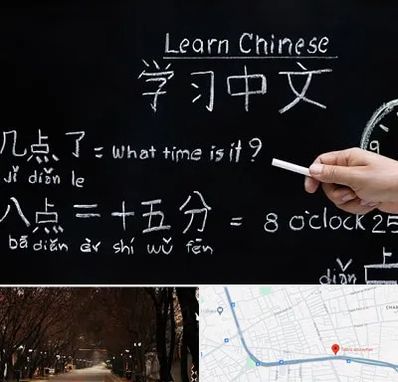 Learn Chinese
学习中文
几点了 = What time is it?
jǐ diǎn le
八点二十五分 = 8 o'clock 25
bā diǎn èr shí wǔ fēn
上
diǎn
9